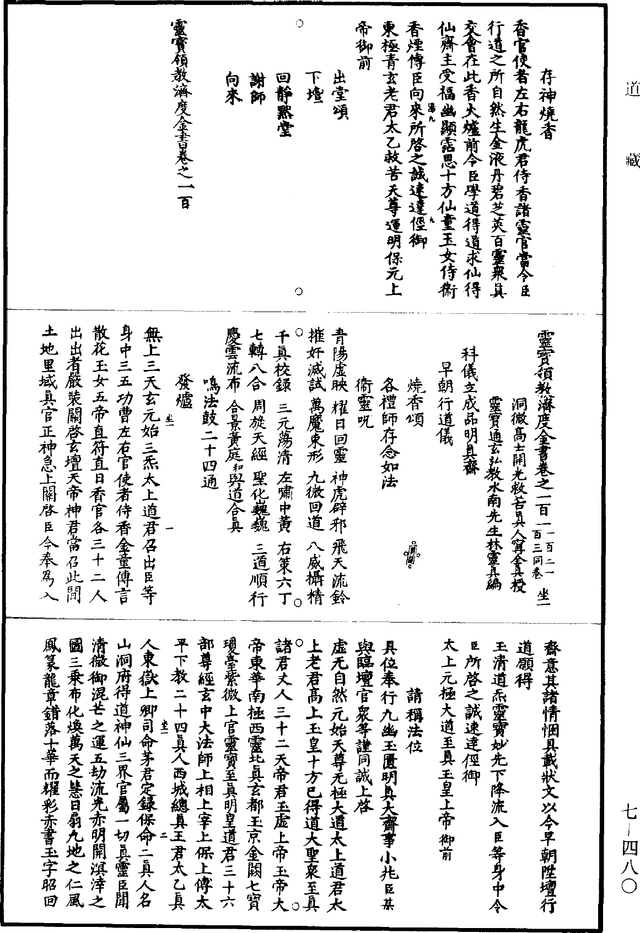 道藏
存神燒香
香官使者左右龍虎君侍香諸靈官當令臣
行道之所自然生金液丹碧芝英百靈衆真
交會在此香火爐前令臣學道得道求仙得
仙齋主受福幽顯霑恩十方仙童玉女侍衛
香煙傳臣向來所啓之誠速達徑御
東極青玄老君太乙救苦天尊運明保元上
帝御前
出堂頌
下壇
回靜默堂
謝師
向來
靈寶領教濟度金書卷之一百
靈寶領教濟度金書卷之一百一
一百二一百三同卷
坐一
洞微高士開光救苦真人甯全真授
靈寶通玄弘教水南先生林靈真編
科儀立成品明真齋
早朝行道儀
燒香頌
各禮師存念如法
衛靈呪
青陽虛映 耀日回靈 神虎辟邪 飛天流鈴
摧奸滅試 萬魔束形 九微回道 八威攝精
千真校錄 三元蕩清 左嘯中黃 右策六丁
七轉八合 周旋天經 聖化巍巍 三道順行
慶雲流布 合景黃庭 和與道合真
鳴法鼓二十四通
發爐
無上三天玄元始三炁太上道君召出臣等
身中三五功曹左右官使者侍香金童傳言
散花玉女五帝直符直日香官各三十二人
出出者嚴裝關啓玄壇天帝神君當召此間
土地里域真官正神急上關啓臣今奉爲入
齋意其諸情悃具載狀文以今早朝陞壇行
道願得
玉清道炁靈寶妙先下降流入臣等身中令
臣所啓之誠速達徑御
太上元極大道至真玉皇上帝御前
請稱法位
具位奉行九幽玉匱明真大齋事小兆臣某
與臨壇官衆等謹同誠上啓
虛无自然元始天尊元極大道太上道君太
上老君高上玉皇十方已得道大聖衆至真
諸君丈人三十二天帝君玉虛上帝玉帝大
帝東華南極西靈北真玄都玉京金闕七寶
瓊臺紫微上宮靈寶至真明皇道君三十六
部尊經玄中大法師上相上宰上保上傅太
平下教二十四真人西城總真王君太乙真
人東嶽上卿司命茅君定錄保命二真人名
山洞府得道神仙三界官屬一切真靈臣聞
清微御混芒之運五劫流光赤明開溟涬之
國三乘布化煥萬天之慧日扇九地之仁風
鳳篆龍章錯落十華而耀彩赤書玉字昭回
七—四八〇